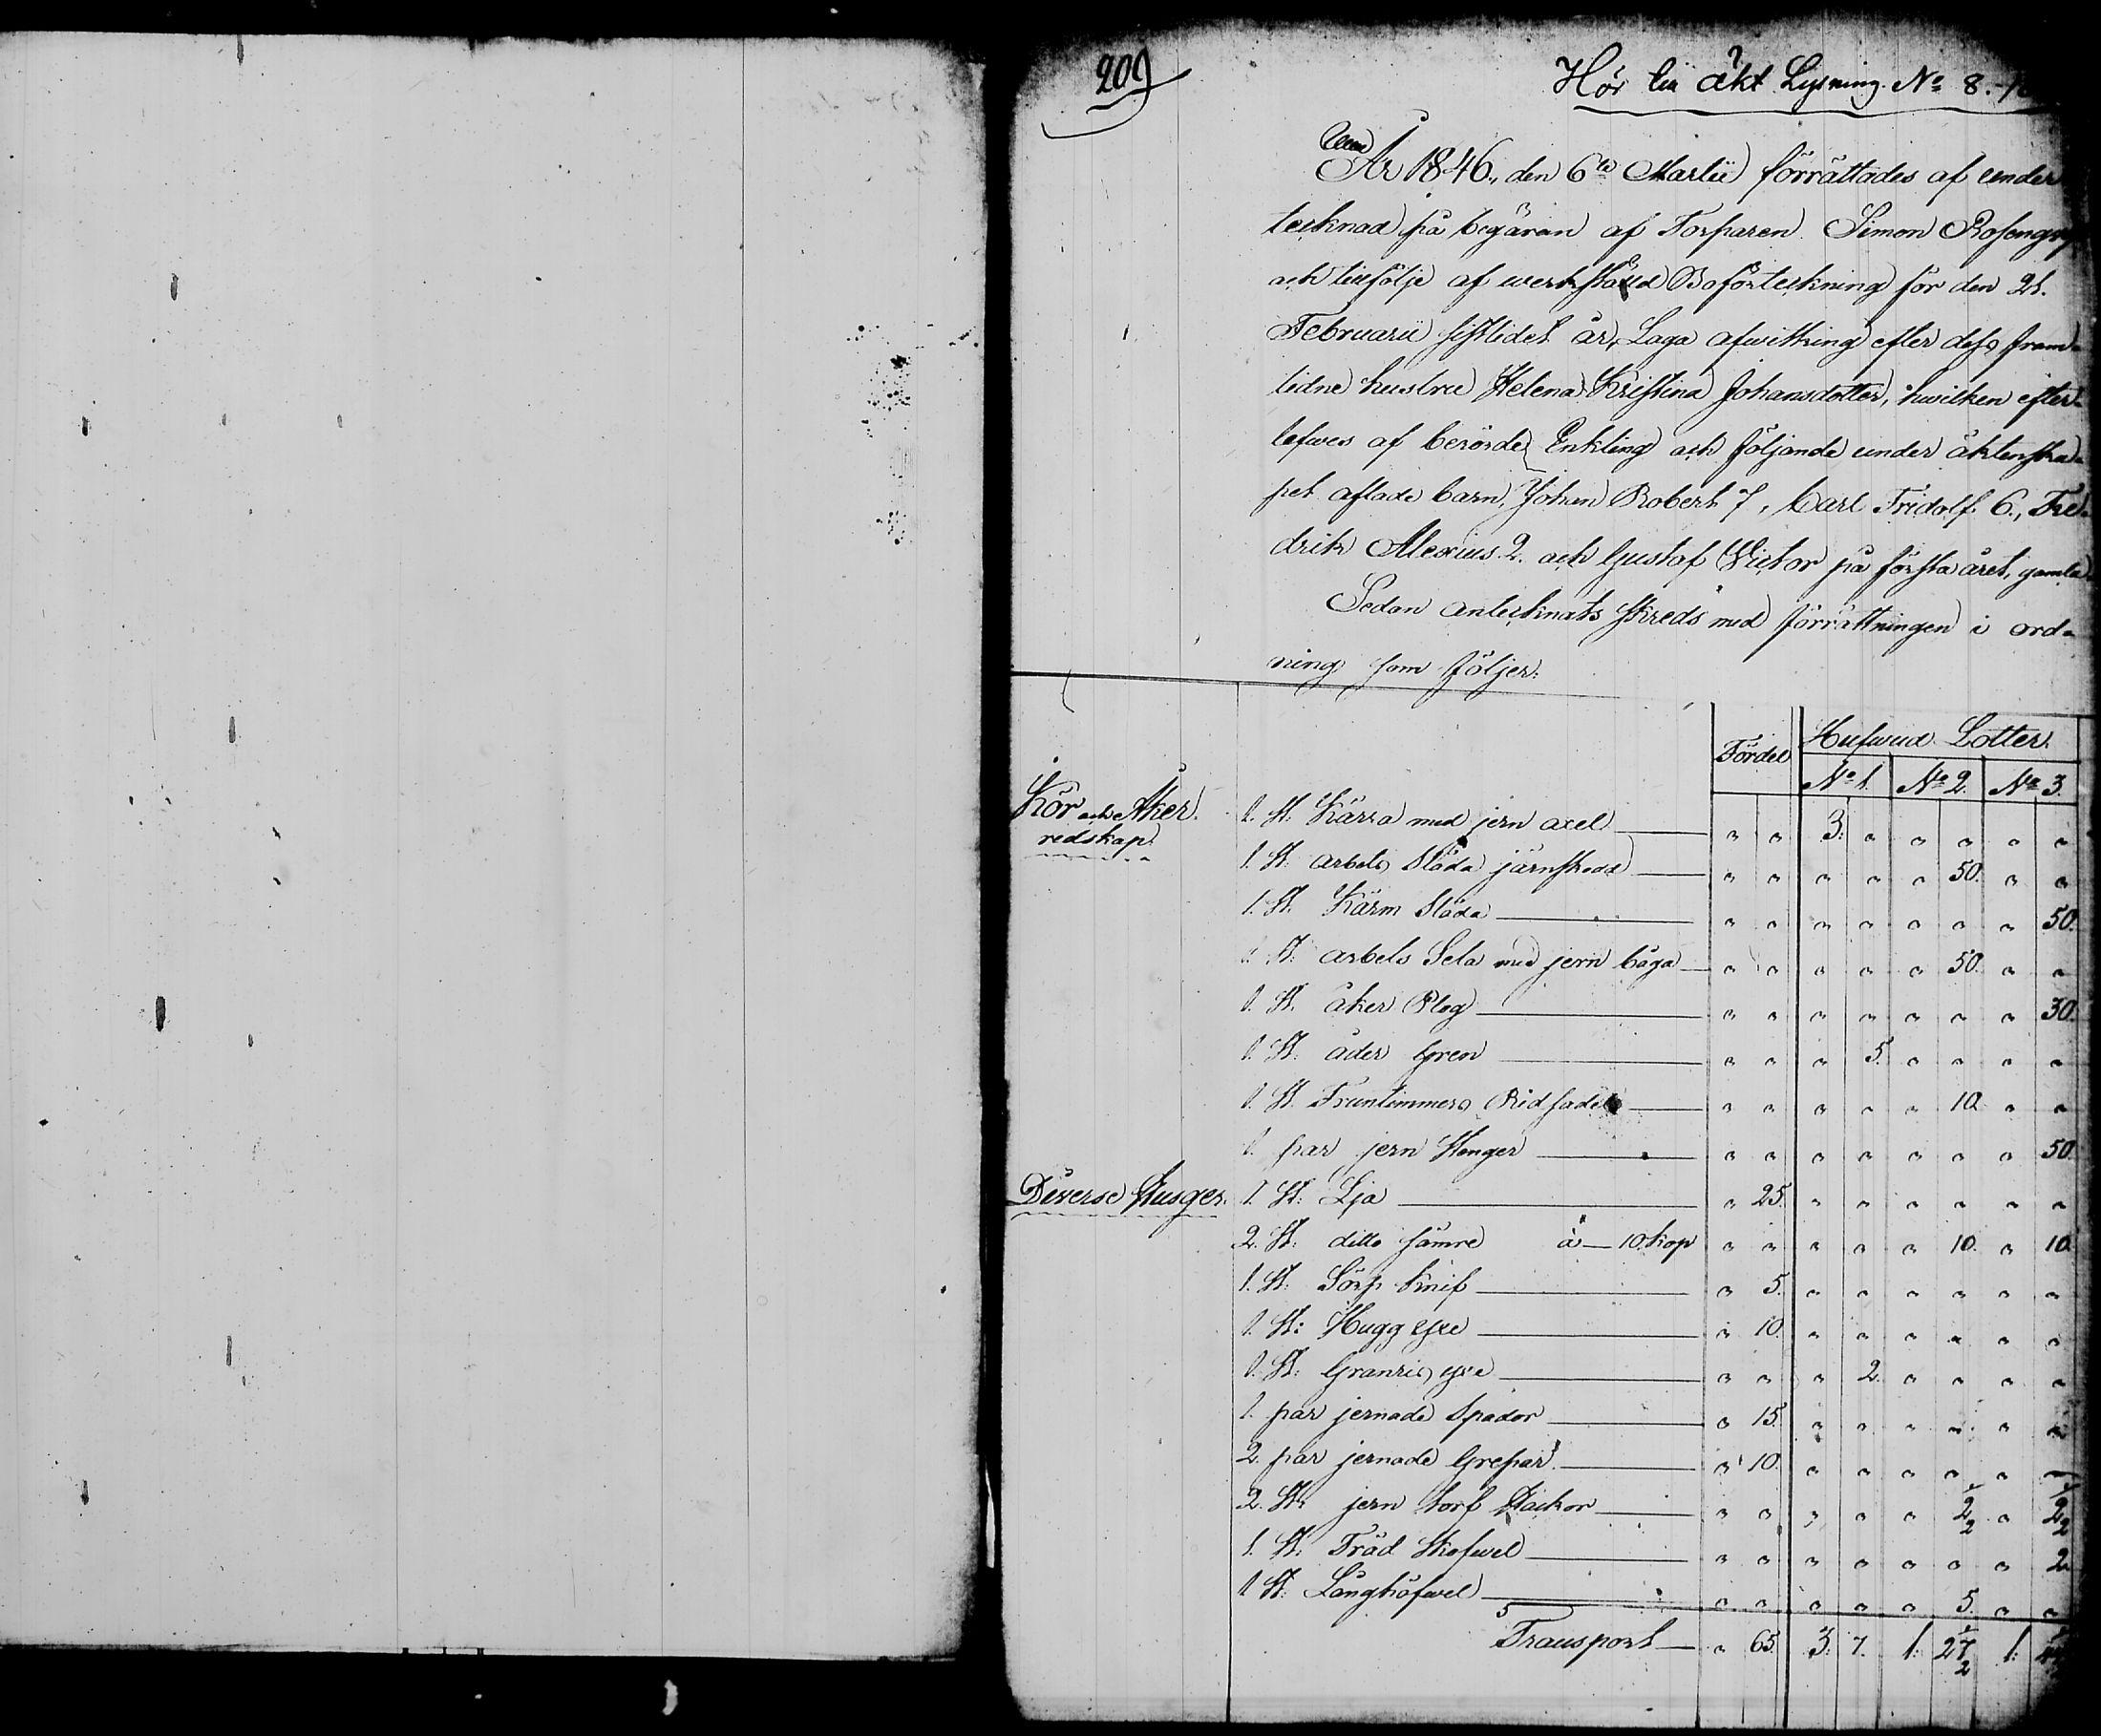 209
Hör till äkt Lysning No 8.
År 1846, den 6te Martii förrättades af under
tecknad på begäran af Torparen Simon
och tillföljd af werkställd Boförteckning för den 21.
Februarii sistledet år, Laga afwittring efter dess fram-
lidne hustru Helena Kristina Johansdotter, hwilken efter-
lefwes af berörde Enkling och följande under äktenska-
pet aflade barn, Johan Robert 7, Carl Fridolf 6., Fre-
drik Alexius 2. och Gustaf Wictor på första året, gamla.
Sedan antecknats skreds med förrättningen i ord-
ning som följer:
Fördel Hufwud Lotter.
No 1. No 2. No 3.
Kör och Åker. 1. St. Kärra med jern axel " " 3: " " " " "
redskap
1. St: arbets Släda järnskodd " " " " " 50. " "
1. St. Kärm Släda " " " " " " " 50.
1. St. arbets Sela med jern båga " " " " " 50. " "
1. St. åker Plog " " " " " " " 30.
1. St. åder Gren " " " 5. " " " "
1. St. Fruntimmers Rid sadel " " " " " 10. " "
1. par jern Stenger " " " " " " " 50.
Diverse Husger. 1. St: Lja " 25. " " " " " "
2. St: ditto sämre à 10. kop " " " " " 10. " 10.
1. St: Sörp knif " 5. " " " " " "
1. St: Hugg yxe " 10. " " " " " "
1. St: Granris yxe " " " 2. " " " "
1. par jernade Spador " 15. " " " " " "
2. par jernade Grepar " 10. " " " " " "
2. St. jern torf Hackor " " " " " 2 1/2 " 2 1/2
1. St. Träd Skofwel " " " " " " " 2.
1 St: " " " " " 5. " "
Transport " 65. 3: 7. 1: 27 1/2 1: